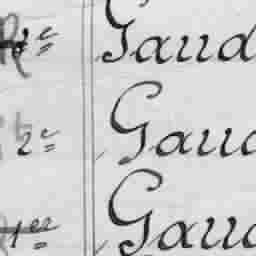 2e Gaud
2e Gaud
1er Gaud